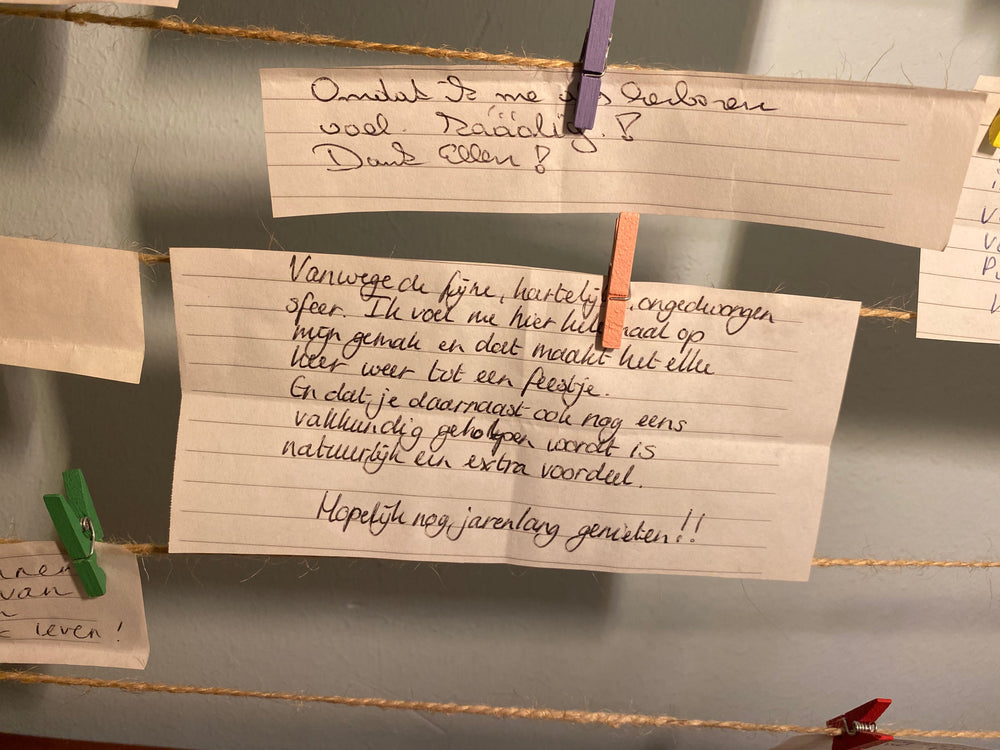 Omdat Ik me als herboren
voel. Zááálig.!
Dank Ellen!
Vanwege de fijne, hartelijk, ongedwongen
sfeer. Ik voel me hier helemaal op
mijn gemak en dat maakt het elke
keer weer tot een feestje.
En dat je daarnaast ook nog eens
vakkundig geholpen wordt is
natuurlijk een extra voordeel.
Hopelijk nog jarenlang genieten!!
van
leven!